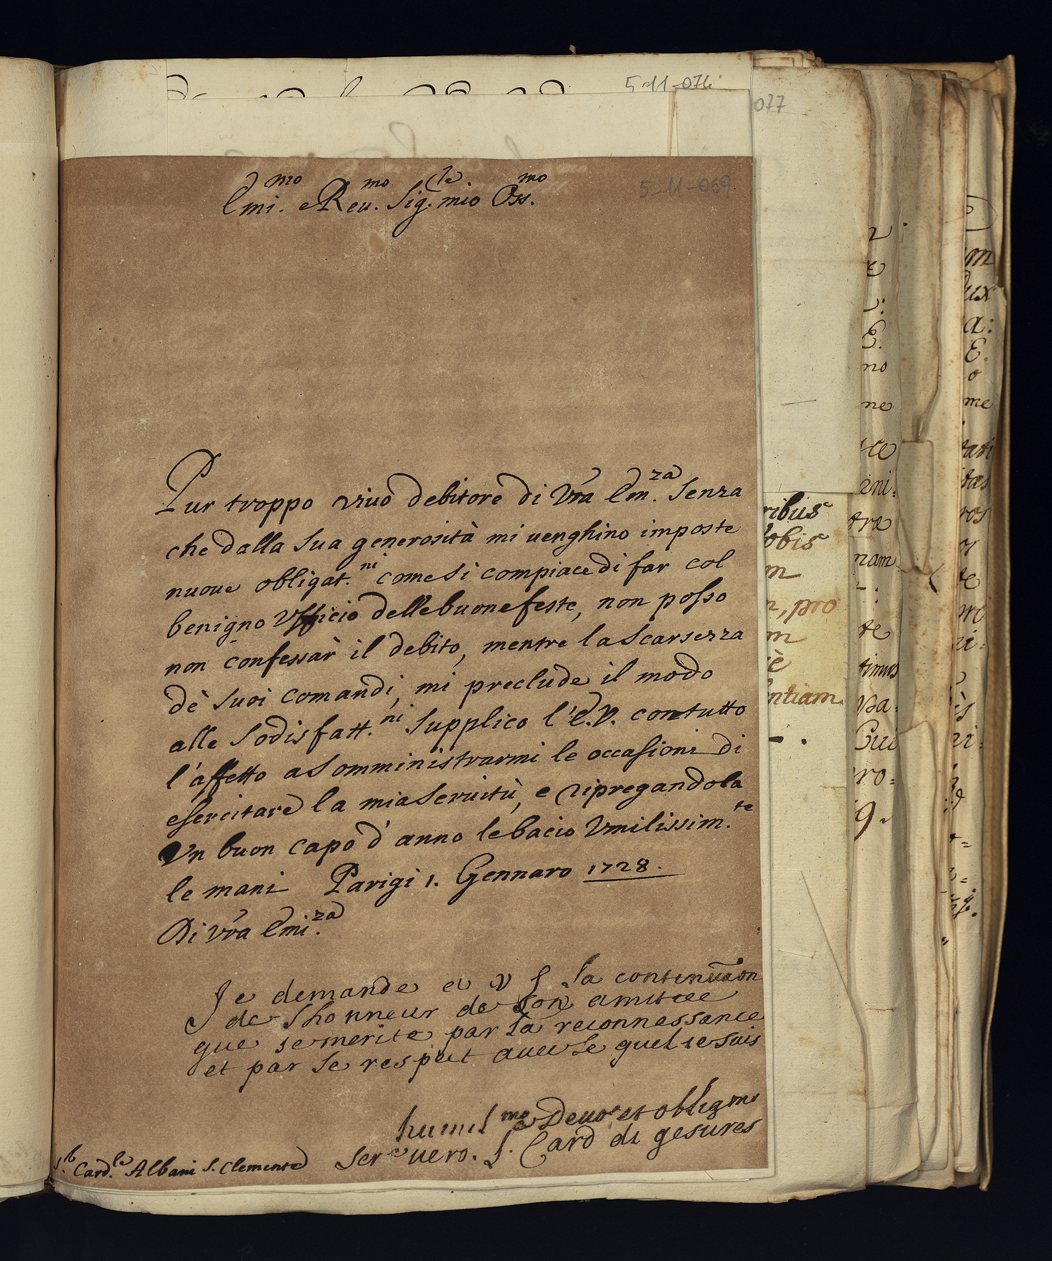 5-11-076
077
5-11-069.
Emi.mo e Reu.mo Sig.r mio Oss.mo
Pur troppo viuo debitore di Vra Em.za senza
che dalla sua generosità mi uenghino imposte
nuoue obligat.ni come si compiace di far col
benigno Vfficio delle buone feste, non posso
non confessar il debito, mentre la scarsezza
dè suoi comandi, mi preclude il modo
alle sodisfatt.ni Supplico l'E.V. con tutto
l'affetto a somministrarmi le occasioni di
esercitare la mia seruitù, e ripregandola
Vn buon capo d'anno le bacio Vmilissim.te
le mani Parigi 1. Gennaro 1728.
Di Vra Emi.za
Je demande a V E la continuaon
de lhonneur de son amitiee
que je merite par la reconnessance
et par le respect auec le quel je suis
humil.mo Deuo et obligmo
Ser.e uero. Il Card di gesures
S.r Card.le Albani S. Clemente
ribus
obis
m
n, pro
m
è
ntiam